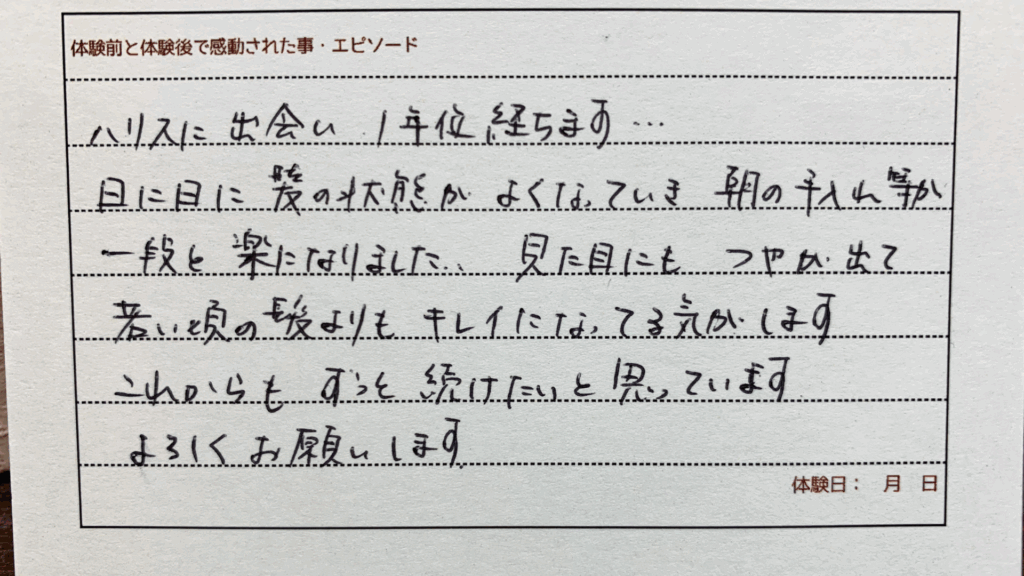 体験前と体験後で感動された事・エピソード
ハリスに 出会い 1年位 経ちます…
日に日に 髪の状態が よくなっていき 朝の手入れ等が
一段と 楽になりました… 見た目にも つやが出て
若い頃の髪よりも キレイになってる気がします
これからも ずっと 続けたいと思っています
よろしく お願いします
体験日： 月 日